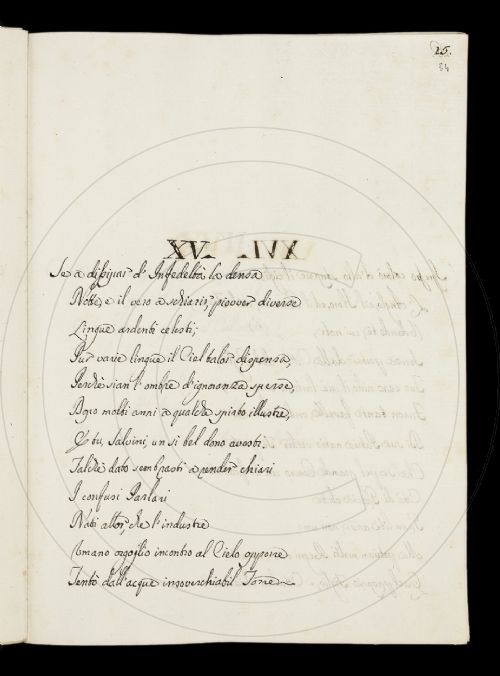 25.
84
XV. XVI
Se a dissipar d'Infedeltà la densa
Notte, e il vero a schiarir, piovver diverse
Lingue ardenti celesti;
Pur varie lingue il Ciel talor dispensa,
Perchè sian l'ombre d'ignoranza sperse,
Agio molti anni a qualche spirto illustre,
E tu, Salvini, un sì bel dono avesti.
Talchè dato sembrasti a render chiari
I confusi Parlari
Nati allor, che l'industre
Umano orgoglio incontro al Cielo opporre
Tentò dall'acque insoverchiabil Torre